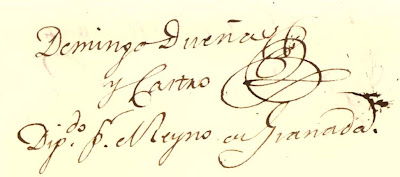 Domingo Dueñas
y Castro
Dip.do p.r el Reyno de Granada.